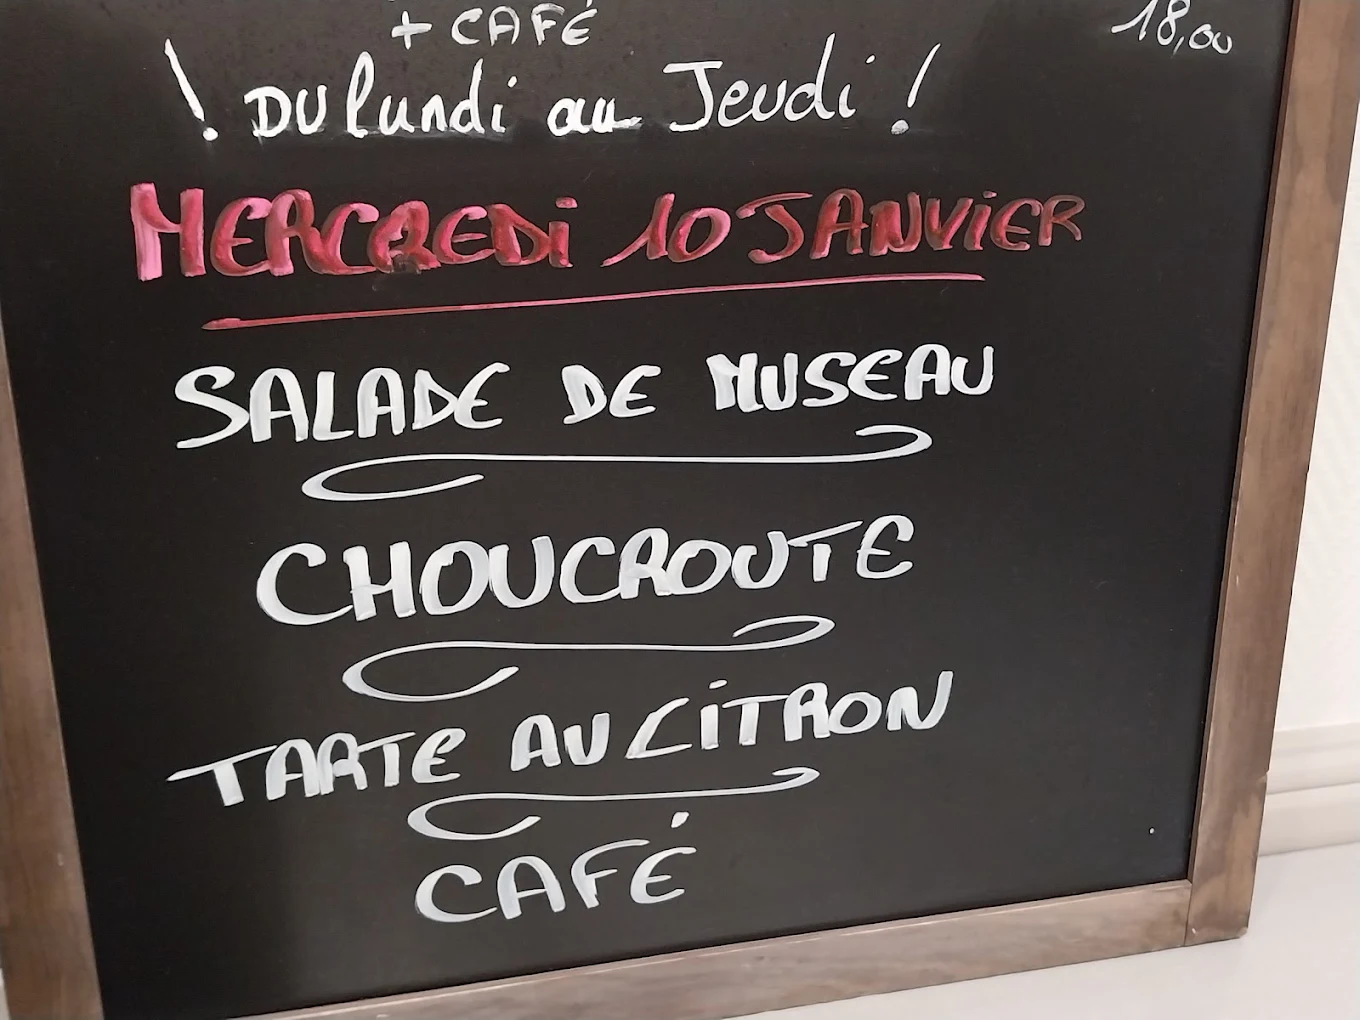 + CAFÉ 18,00
! DU lundi au Jeudi !
MERCREDi 10 JANViER
SALADE DE MUSEAU
CHOUCROUTE
TARTE AU CiTRON
CAFÉ